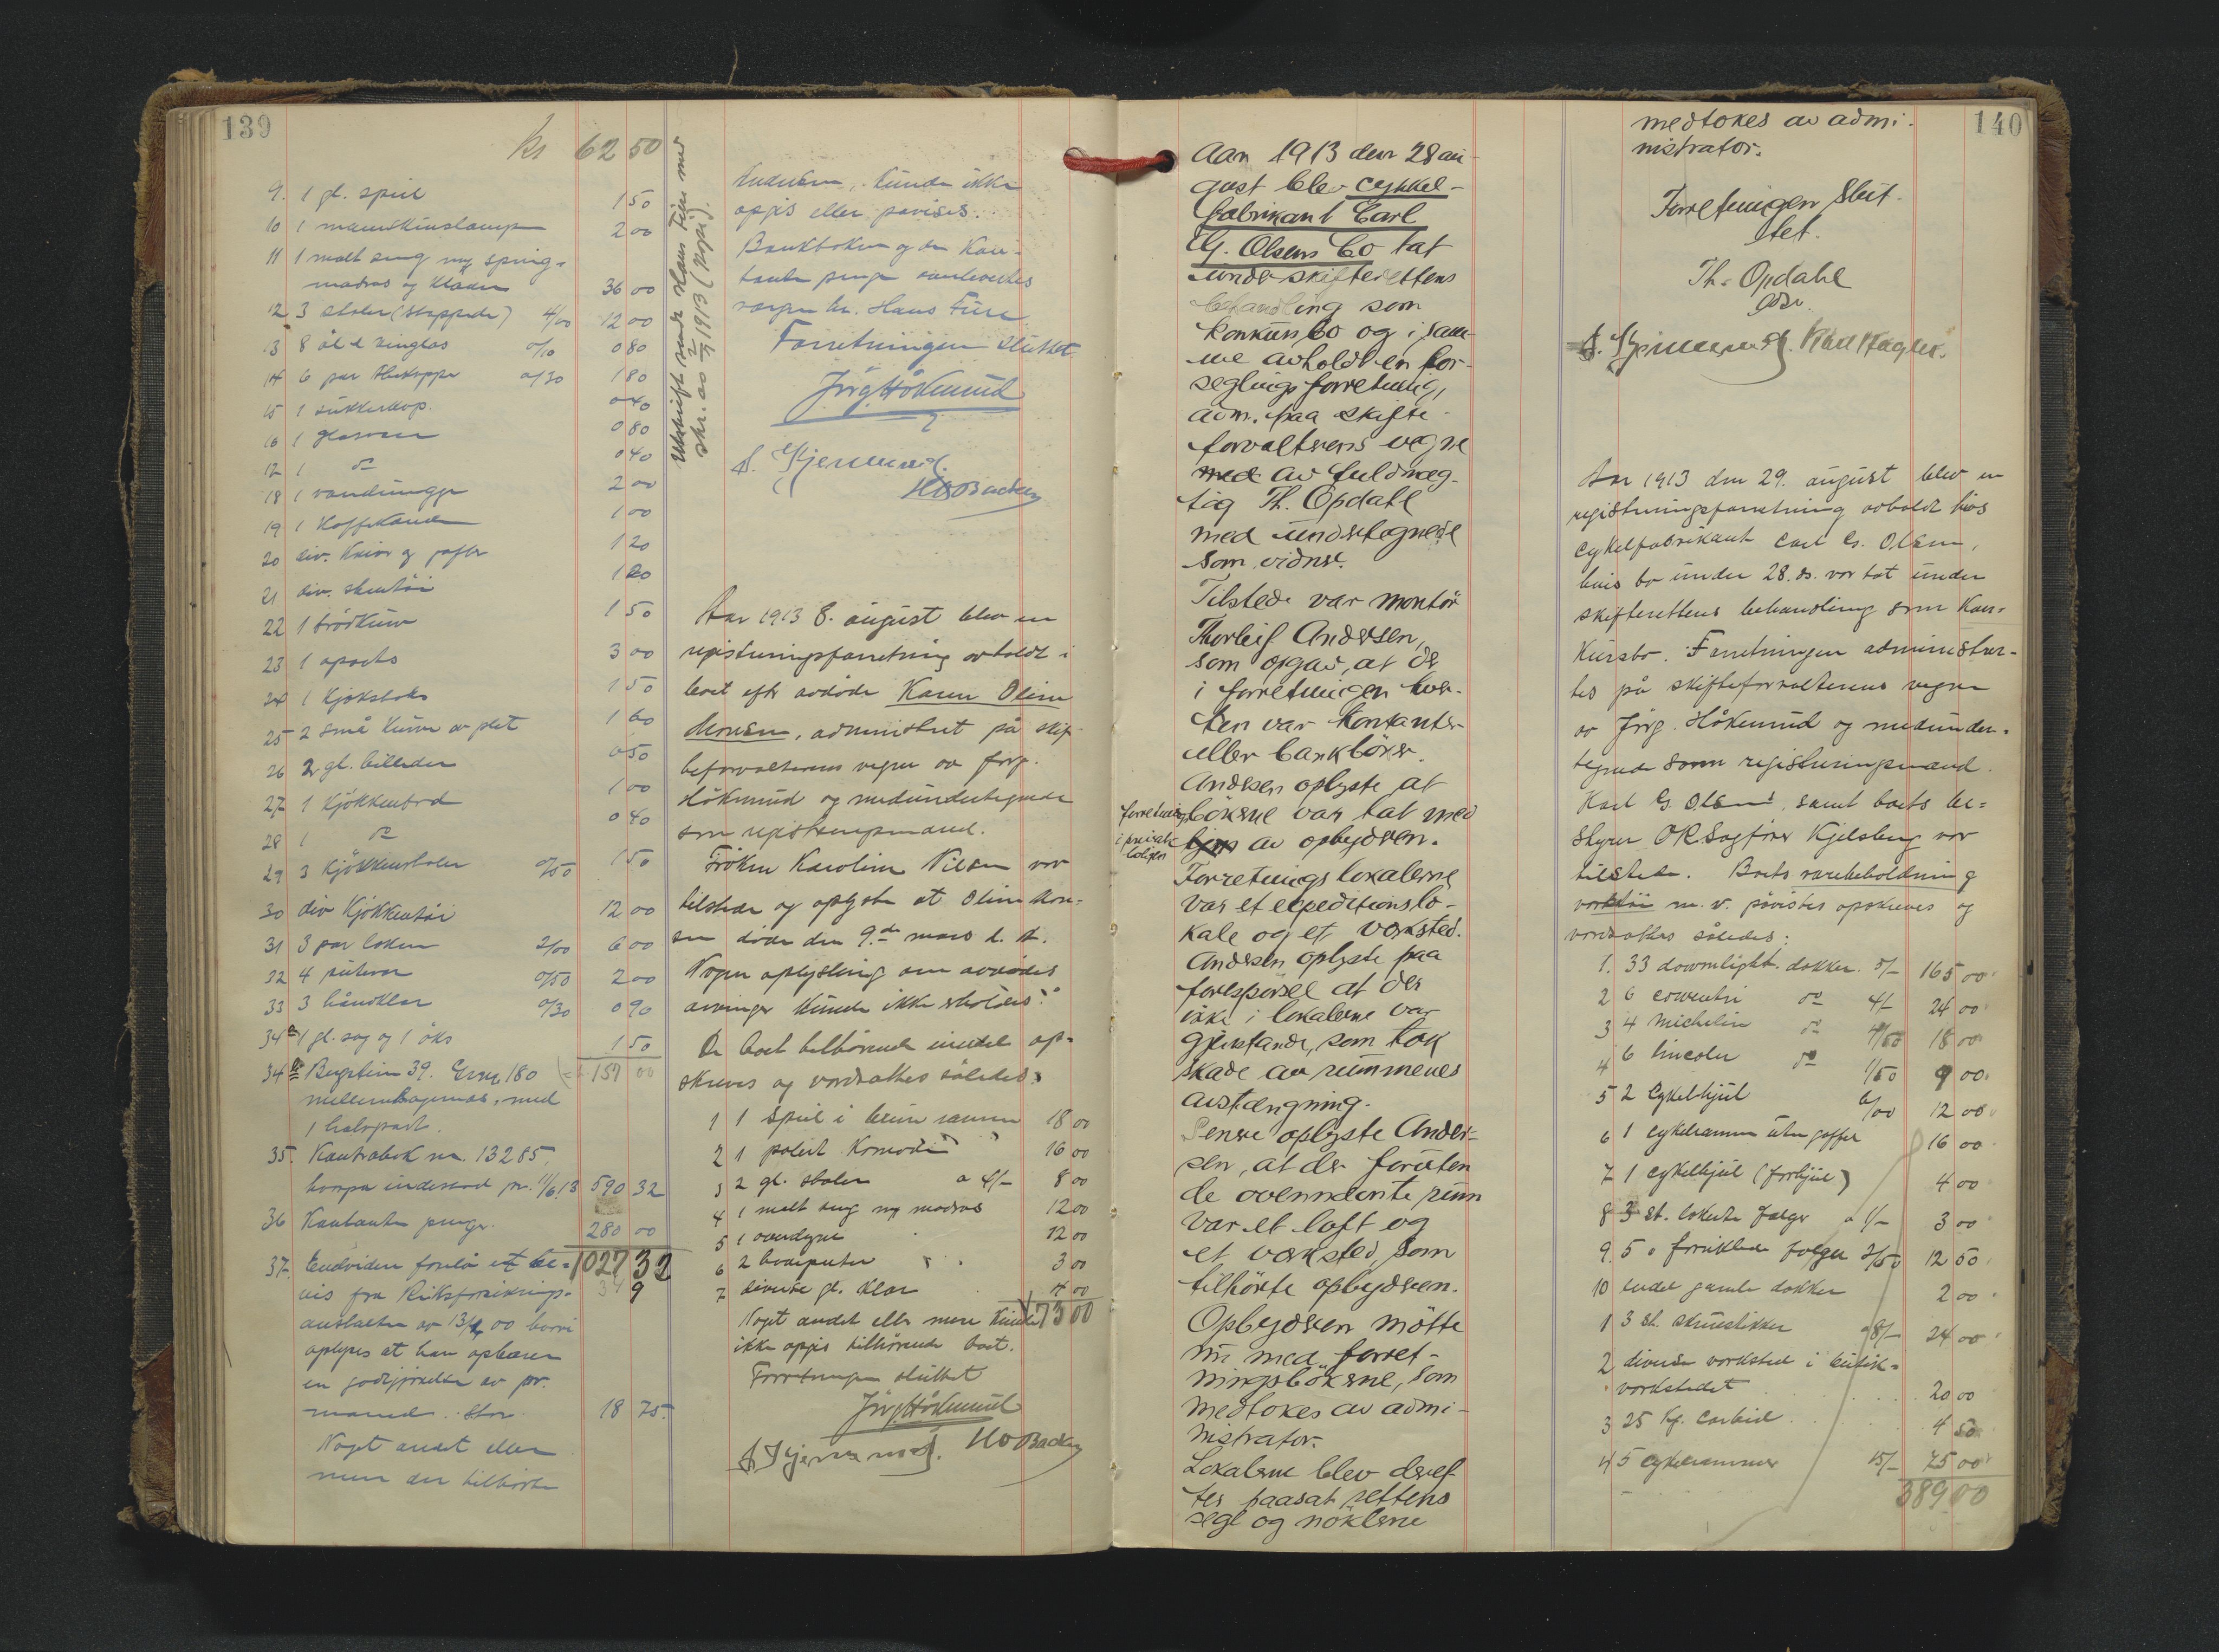 139
kr 62 50
9. 1 gl. speil 1 50
10 1 2 00
11 1 malt seng m/ spring-
madras og klær 36 00
12 3 stoler (stoppede) 4/00 12 00
13 8 øl & vinglas 0/10 0 80
14 6 par 0/30 1 80
15 1 sukkerkop. 0 40
16 1 0 80
17 1 do 0 40
18 1 vandmugge 2 00
19 1 Kaffekande 1 00
20 div. Kniver og gafler 1 20
21 div. stentöi 1 20
22 1 brödkurv 1 50
23 1 3 00
24 1 1 50
25 2 små kurver av plet 1 60
26 2 gl. billeder 0 50
27 1 Kjökkenbord 1 00
28 1 do 0 40
29 3 Kjökkenstoler 0/50 1 50
30 div Kjökkentöi 12 00
31 3 par laken 2/00 6 00
32 4 putevar 0/50 2 00
33 3 håndklær 0/30 0 90
34a 1 gl. sag og 1 öks 1 50
34b Bergstien 39. 180 157 00
med
1 halvpart.
35. Kontrabok nr. 13285.
indestaaende pr. 11/6 13 590 32
36 Kontante penge. 280 00
37. Endvidere forelå et be- 1027 32
vis fra Riksforsikrings-
anstalten av 13/4 00 hvori
oplyses at han opbærer
en godtgjörelse av pr.
maaned. stor 18 75.
Noget andet eller
mere der tilhörte
Utskrift sendt Hans Fure med
skr. av 2/9 1913 (Kopi).
kunde ikke
opgis eller pavises.
Bankboken og de Kon-
tante penge overleveredes
vergen hr. Hans Fure
Forretningen sluttet
Jörg Håkenrud
A. Gjermund.
H O Backer
Aar 1913 8. august blev en
registreringsforretning avholdt i
boet efter avdöde Karen Oline
Monsen, administreret på skif-
teforvalterens vegne av Jörg.
Håkenrud og medundertegnede
som registreringsmænd.
Fröken Karoline Nilsen var
tilstede og oplyste at Oline Mon-
sen döde den 9.de mars d. å.
Nogen oplysning om avdödes
arvinger kunde ikke erholdes.
De boet tilhörende eiendele op-
skreves og verdsattes således:
1 1 speil i brun ramme 18 00
2 1 polert Komode 16 00
3 2 gl. stoler a 4/- 8 00
4 1 malt seng m/ madras 12 00
5 1 overdyne 12 00
6 2 hodeputer 3 00
7 diverse gl. klær 4 00
Noget andet eller mere kunde 73 00
ikke opgis tilhörende boet.
Forretningen sluttet
Jörg Håkenrud
A. Gjermund. H O Backer
Aar 1913 den 28 au-
gust blev cykkel-
fabrikant Carl
G. Olsens bo tat
under skifterettens
behandling som
konkursbo og i sam-
me avholdt en for-
seglingsforretning,
adm. paa skifte-
forvalterens vegne
med av fuldmæg-
tig Th. Opdahl
med undertegnede
som vidner.
Tilstede var montör
Thorleif Andersen,
som opgav, at der
i forretningen hver-
ken var kontanter
eller bankböker.
Andersen oplyste at
forretningsbökerne var tat med
hjem av opbyderen.
i privat-
boligen
Forretningslokalerne
var et expeditionslo-
kale og et verksted.
Andersen oplyste paa
forespörsel at der
ikke i lokalerne var
gjenstande, som tok
skade av rummenes
avstængning.
Senere oplyste Ander-
sen, at der foruten
de ovennævnte rum
var et loft og
et verksted som
tilhörte opbyderen.
Opbyderen mötte
nu med forret-
ningsbökerne, som
medtokes av admi-
nistrator.
Lokalerne blev deref-
ter paasat rettens
segl og nöklerne
140
medtokes av admi-
nistrator.
Forretningen slut-
tet.
Th. Opdahl
A. Gjermund. Karl Hagler.
Aar 1913 den 29. august blev en
registreringsforretning avholdt hos
cykelfabrikant Carl G. Olsen,
hvis bo under 28. ds. var tat under
skifterettens behandling som Kon-
kursbo. Forretningen administrer-
tes på skifteforvalterens vegne
av Jörg. Håkenrud og medunder-
tegnede som registreringsmænd.
Karl G. Olsen, samt boets be-
styrer O.R. Sagförer Kjelsberg var
tilstede. Boets varebeholdning
verktöi m. v. påvistes opskreves og
verdsattes således:
1. 33 downlight. dekker 5/- 165 00
2 6 coventri do 4/- 24 00
3 4 Michelin do 4/50 18 00
4 6 lincoln do 1/50 9 00
5 2 Cykelhjul 6/00 12 00
6 1 cykelramme uten gaffel 16 00
7 1 cykelhjul (forhjul) 4 00
8 3 st. lakerte fælger a 1/- 3 00
9. 5 " forniklede fælger 2/50 12 50
10 endel gamle dekker 2 00
1 3 st. skruestikker a 8/- 24 00
2 diverse verksted i butik-
verkstedet 20 00
3 25 kg. Carbid 4 50
4 5 cykelrammer 15/- 75 00
389 00